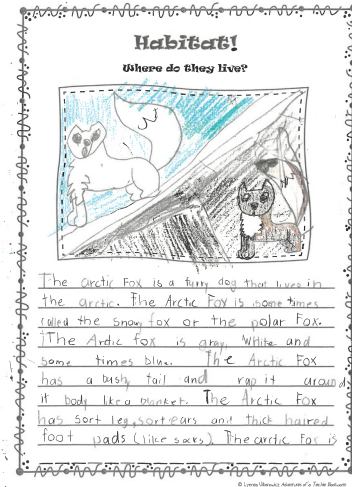 Habitat!
Where do they live?
The arctic Fox is a furry dog that lives in
the arctic. The Arctic Fox is some times
called the snow fox or the polar Fox.
The Arctic fox is gray, White and
some times blue. The Arctic Fox
has a bushy tail and rap it around
it body like a blanket. The Arctic Fox
has sort leg, sort ears and thick haired
foot pads (like socks). The arctic Fox is